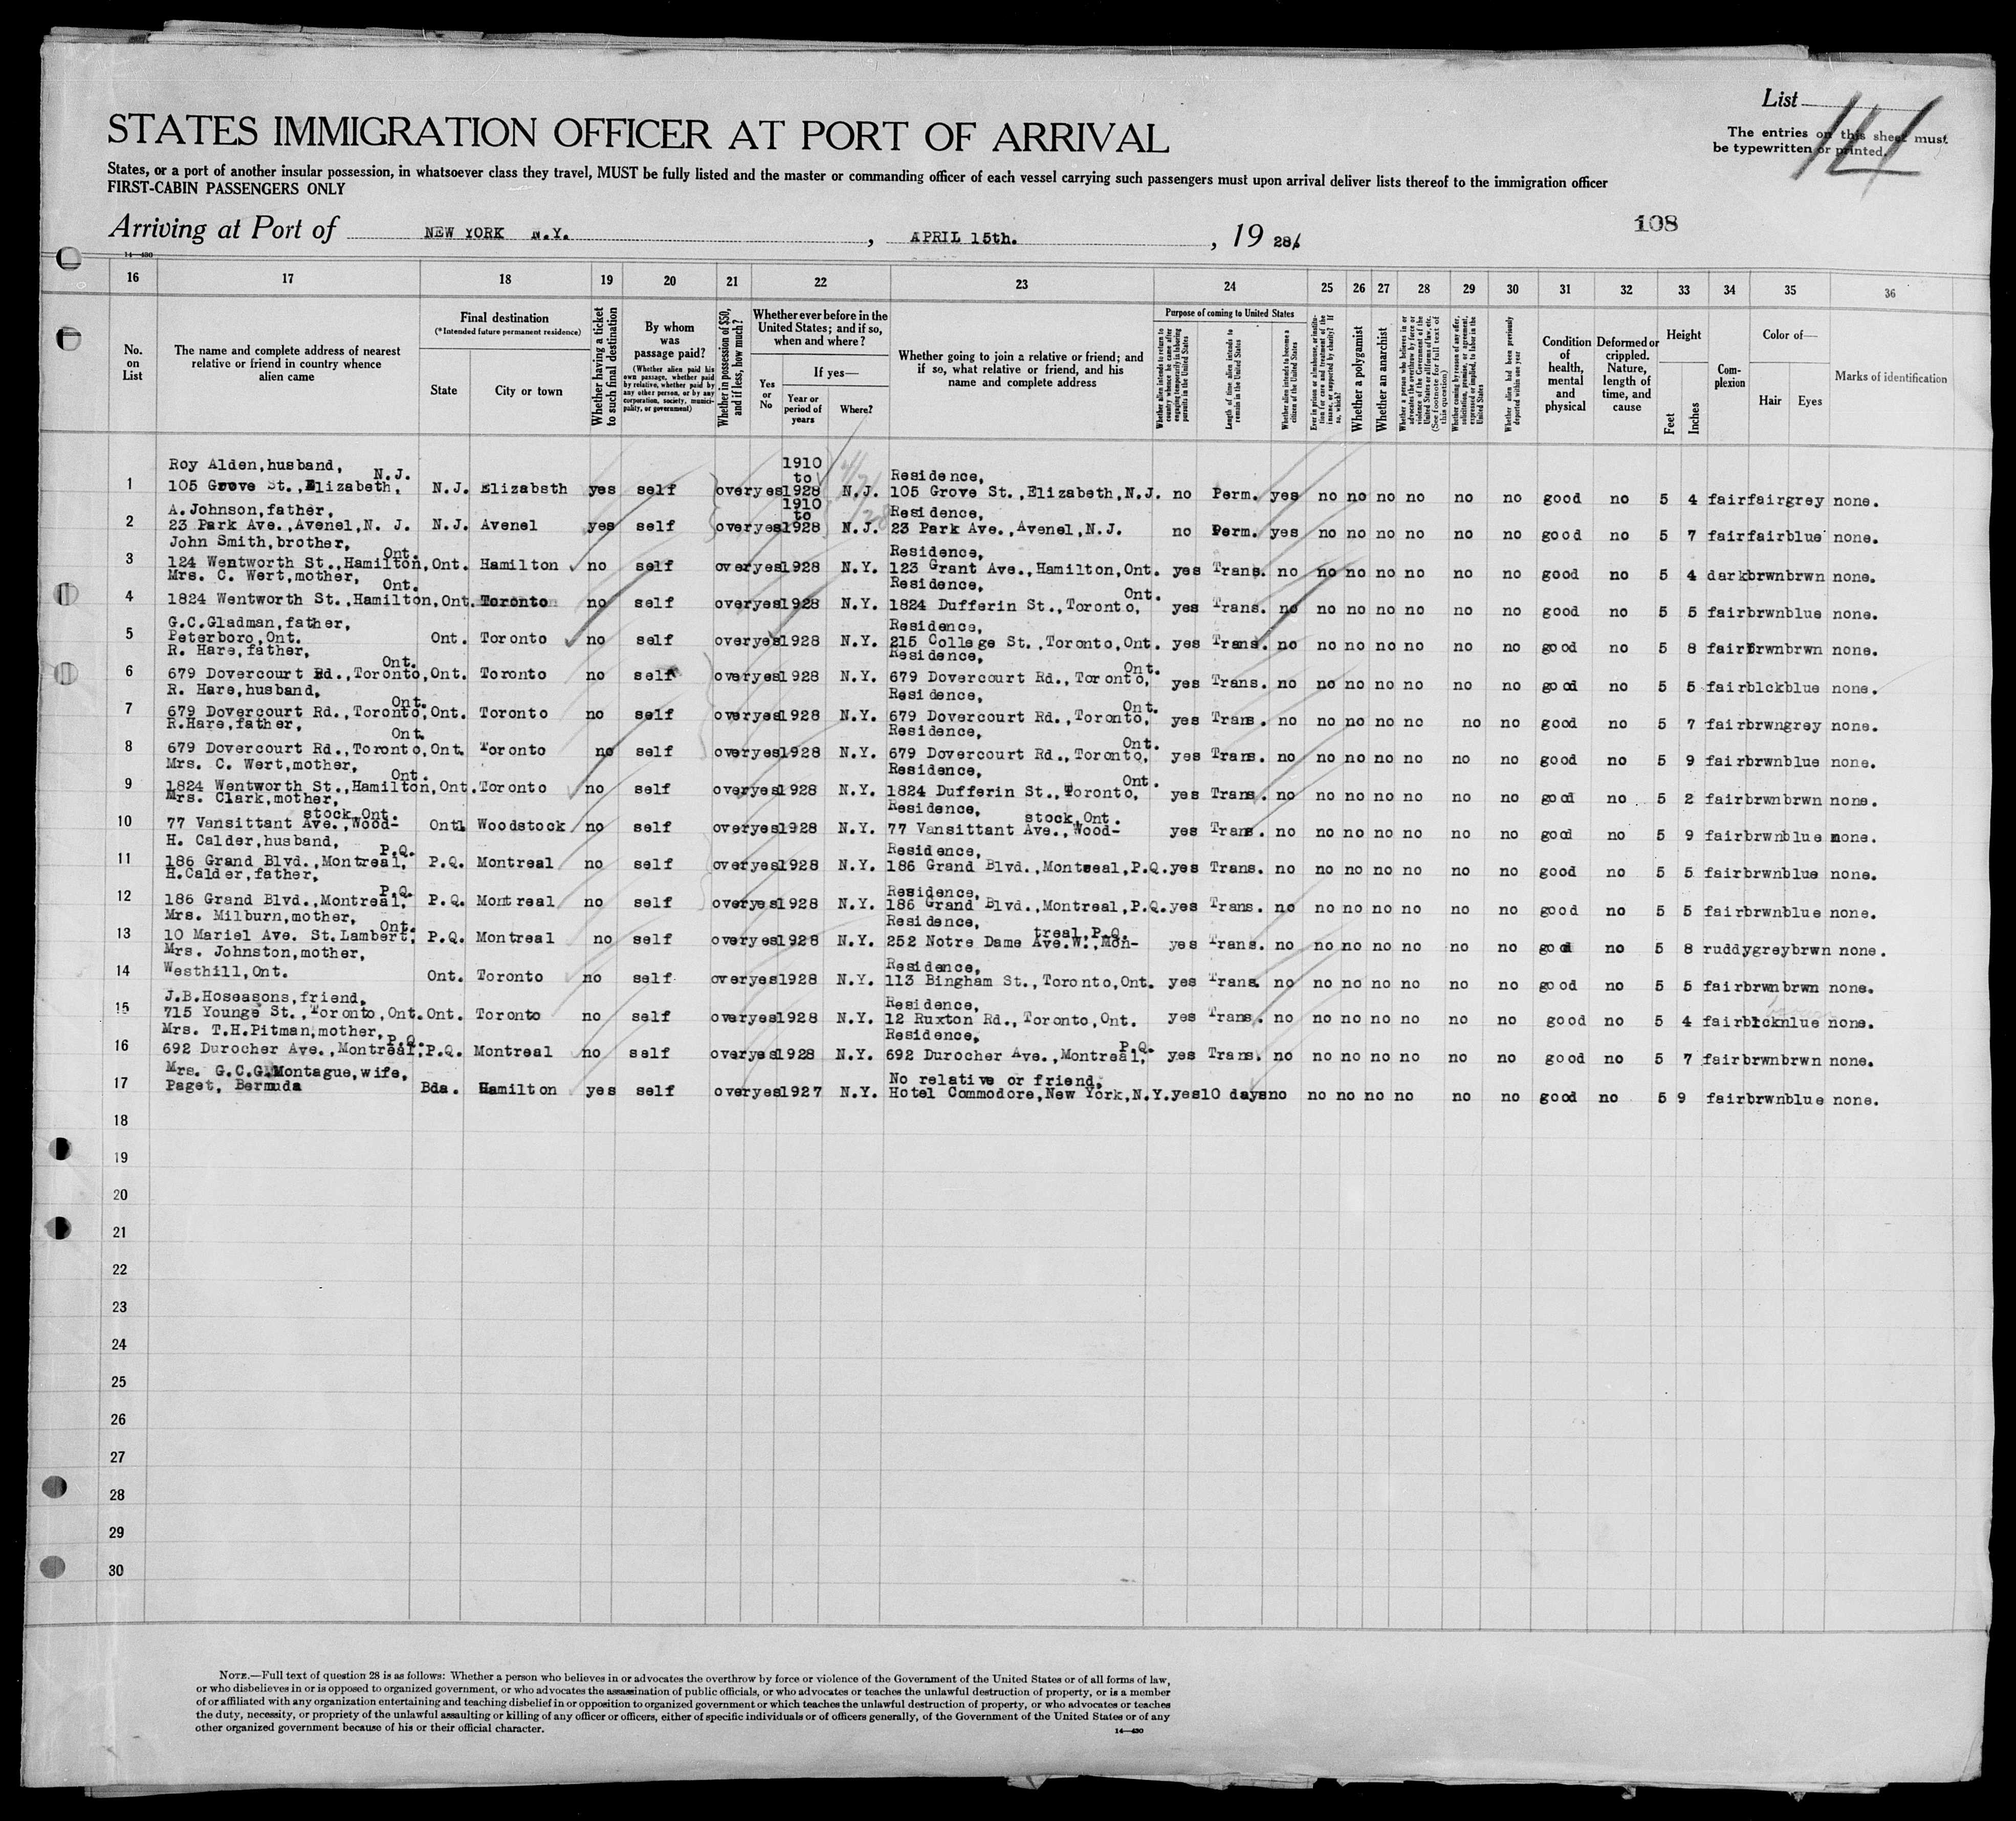 List 14
The entries on this sheet must
be typewritten or printed.
STATES IMMIGRATION OFFICER AT PORT OF ARRIVAL
States, or a port of another insular possession, in whatsoever class they travel, MUST be fully listed and the master or commanding officer of each vessel carrying such passengers must upon arrival deliver lists thereof to the immigration officer
FIRST-CABIN PASSENGERS ONLY
108
Arriving at Port of NEW YORK N.Y. , APRIL 15th. , 19 28
14—430
16 17 18 19 20 21 22 23 24 25 26 27 28 29 30 31 32 33 34 35 36
No. on List
The name and complete address of nearest relative or friend in country whence alien came
Final destination
(*Intended future permanent residence)
State
City or town
Whether having a ticket to such final destination
By whom was passage paid?
(Whether alien paid his own passage, whether paid by relative, whether paid by any other person, or by any corporation, society, municipality, or government)
Whether in possession of $50, and if less, how much?
Whether ever before in the United States; and if so, when and where?
Yes or No
If yes—
Year or period of years
Where?
Whether going to join a relative or friend; and if so, what relative or friend, and his name and complete address
Purpose of coming to United States
Whether alien intends to return to country whence he came after engaging temporarily in laboring pursuits in the United States
Length of time alien intends to remain in the United States
Whether alien intends to become a citizen of the United States
Ever in prison or almshouse, or institution for care and treatment of the insane, or supported by charity? If so, which?
Whether a polygamist
Whether an anarchist
Whether a person who believes in or advocates the overthrow by force or violence of the Government of the United States or all forms of law, etc. (See footnote for full text of this question)
Whether coming by reason of any offer, solicitation, promise, or agreement, expressed or implied, to labor in the United States
Whether alien had been previously deported within one year
Condition of health, mental and physical
Deformed or crippled. Nature, length of time, and cause
Height
Feet
Inches
Complexion
Color of—
Hair
Eyes
Marks of identification
1 Roy Alden,husband, 105 Grove St.,Elizabeth, N.J. N.J. Elizabsth yes self over yes 1910 to 1928 N.J. Residence, 105 Grove St.,Elizabeth,N.J. no Perm. yes no no no no no no good no 5 4 fair fair grey none.
2 A.Johnson,father, 23 Park Ave.,Avenel,N. J. N.J. Avenel yes self over yes 1910 to 1928 N.J. Residence, 23 Park Ave.,Avenel,N.J. no Perm. yes no no no no no no good no 5 7 fair fair blue none.
3 John Smith,brother, 124 Wentworth St.,Hamilton, Ont. Ont. Hamilton no self over yes 1928 N.Y. Residence, 123 Grant Ave.,Hamilton,Ont. yes Trans. no no no no no no no good no 5 4 dark brwn brwn none.
4 Mrs. C. Wert,mother, 1824 Wentworth St.,Hamilton, Ont. Ont. Toronto no self over yes 1928 N.Y. Residence, 1824 Dufferin St.,Toronto, Ont. yes Trans. no no no no no no no good no 5 5 fair brwn blue none.
5 G.C.Gladman,father, Peterboro,Ont. Ont. Toronto no self over yes 1928 N.Y. Residence, 215 College St.,Toronto,Ont. yes Trans. no no no no no no no good no 5 8 fair brwn brwn none.
6 R. Hare,father, 679 Dovercourt Rd.,Toronto, Ont. Ont. Toronto no self over yes 1928 N.Y. Residence, 679 Dovercourt Rd.,Toronto, Ont. yes Trans. no no no no no no no good no 5 5 fair blck blue none.
7 R. Hare,husband, 679 Dovercourt Rd.,Toronto, Ont. Ont. Toronto no self over yes 1928 N.Y. Residence, 679 Dovercourt Rd.,Toronto, Ont. yes Trans. no no no no no no no good no 5 7 fair brwn grey none.
8 R.Hare,father, 679 Dovercourt Rd.,Toronto, Ont. Ont. Toronto no self over yes 1928 N.Y. Residence, 679 Dovercourt Rd.,Toronto, Ont. yes Trans. no no no no no no no good no 5 9 fair brwn blue none.
9 Mrs. C. Wert,mother, 1824 Wentworth St.,Hamilton, Ont. Ont. Toronto no self over yes 1928 N.Y. Residence, 1824 Dufferin St.,Toronto, Ont. yes Trans. no no no no no no no good no 5 2 fair brwn brwn none.
10 Mrs. Clark,mother, 77 Vansittant Ave.,Wood- stock,Ont. Ont. Woodstock no self over yes 1928 N.Y. Residence, 77 Vansittant Ave.,Wood- stock,Ont. yes Trans. no no no no no no no good no 5 9 fair brwn blue none.
11 H. Calder,husband, 186 Grand Blvd.,Montreal, P.Q. P.Q. Montreal no self over yes 1928 N.Y. Residence, 186 Grand Blvd.,Montreal,P.Q. yes Trans. no no no no no no no good no 5 5 fair brwn blue none.
12 H.Calder,father, 186 Grand Blvd.,Montreal, P.Q. P.Q. Montreal no self over yes 1928 N.Y. Residence, 186 Grand Blvd.,Montreal,P.Q. yes Trans. no no no no no no no good no 5 5 fair brwn blue none.
13 Mrs. Milburn,mother, 10 Mariel Ave. St.Lambert, Ont. P.Q. Montreal no self over yes 1928 N.Y. Residence, 252 Notre Dame Ave.W.,Mon- treal,P.Q. yes Trans. no no no no no no no good no 5 8 ruddy grey brwn none.
14 Mrs. Johnston,mother, Westhill,Ont. Ont. Toronto no self over yes 1928 N.Y. Residence, 113 Bingham St.,Toronto,Ont. yes Trans. no no no no no no no good no 5 5 fair brwn brwn none.
15 J.B.Hoseasons,friend, 715 Younge St.,Toronto,Ont. Ont. Toronto no self over yes 1928 N.Y. Residence, 12 Ruxton Rd.,Toronto,Ont. yes Trans. no no no no no no no good no 5 4 fair none.
16 Mrs. T.H.Pitman,mother, 692 Durocher Ave.,Montreal, P.Q. P.Q. Montreal no self over yes 1928 N.Y. Residence, 692 Durocher Ave.,Montreal, P.Q. yes Trans. no no no no no no no good no 5 7 fair brwn brwn none.
17 Mrs. G.C.G.Montague,wife, Paget, Bermuda Bda. Hamilton yes self over yes 1927 N.Y. No relative or friend, Hotel Commodore,New York,N.Y. yes 10 days no no no no no no no good no 5 9 fair brwn blue none.
18
19
20
21
22
23
24
25
26
27
28
29
30
NOTE.—Full text of question 28 is as follows: Whether a person who believes in or advocates the overthrow by force or violence of the Government of the United States or of all forms of law,
or who disbelieves in or is opposed to organized government, or who advocates the assassination of public officials, or who advocates or teaches the unlawful destruction of property, or is a member
of or affiliated with any organization entertaining and teaching disbelief in or opposition to organized government or which teaches the unlawful destruction of property, or who advocates or teaches
the duty, necessity, or propriety of the unlawful assaulting or killing of any officer or officers, either of specific individuals or of officers generally, of the Government of the United States or of any
other organized government because of his or their official character.
14—430